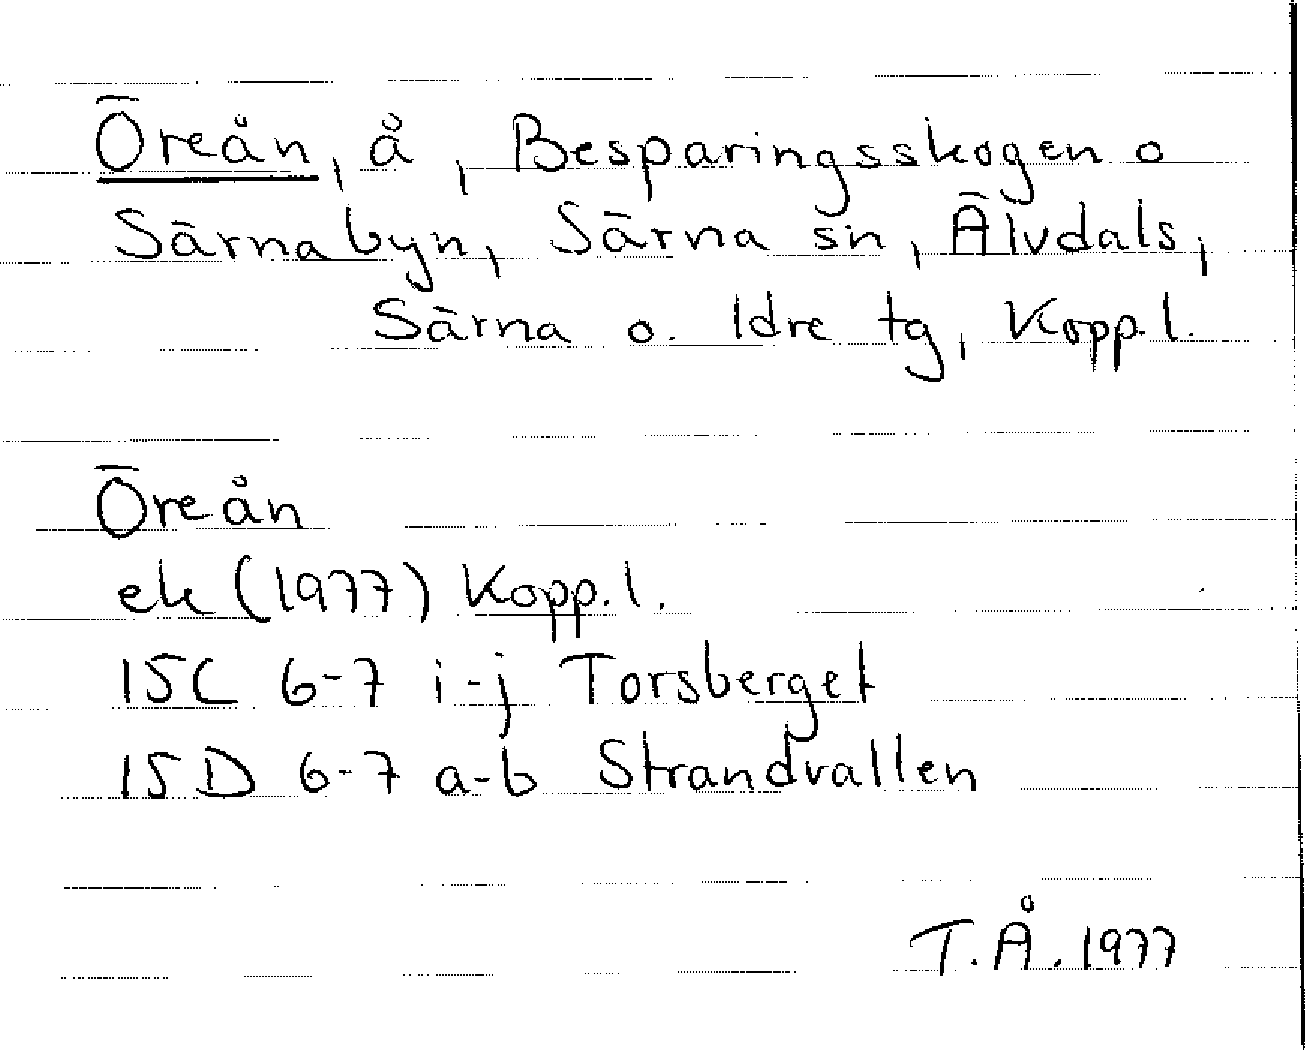 Öreån, å, Besparingsskogen o
Särnabyn, Särna sn, Älvdals,
Särna o. Idre tg, Kopp.l.
Öreån
ek (1977) Kopp.l.
15C 6-7 i-j Torsberget
15D 6-7 a-b Strandvallen
T.Å. 1977